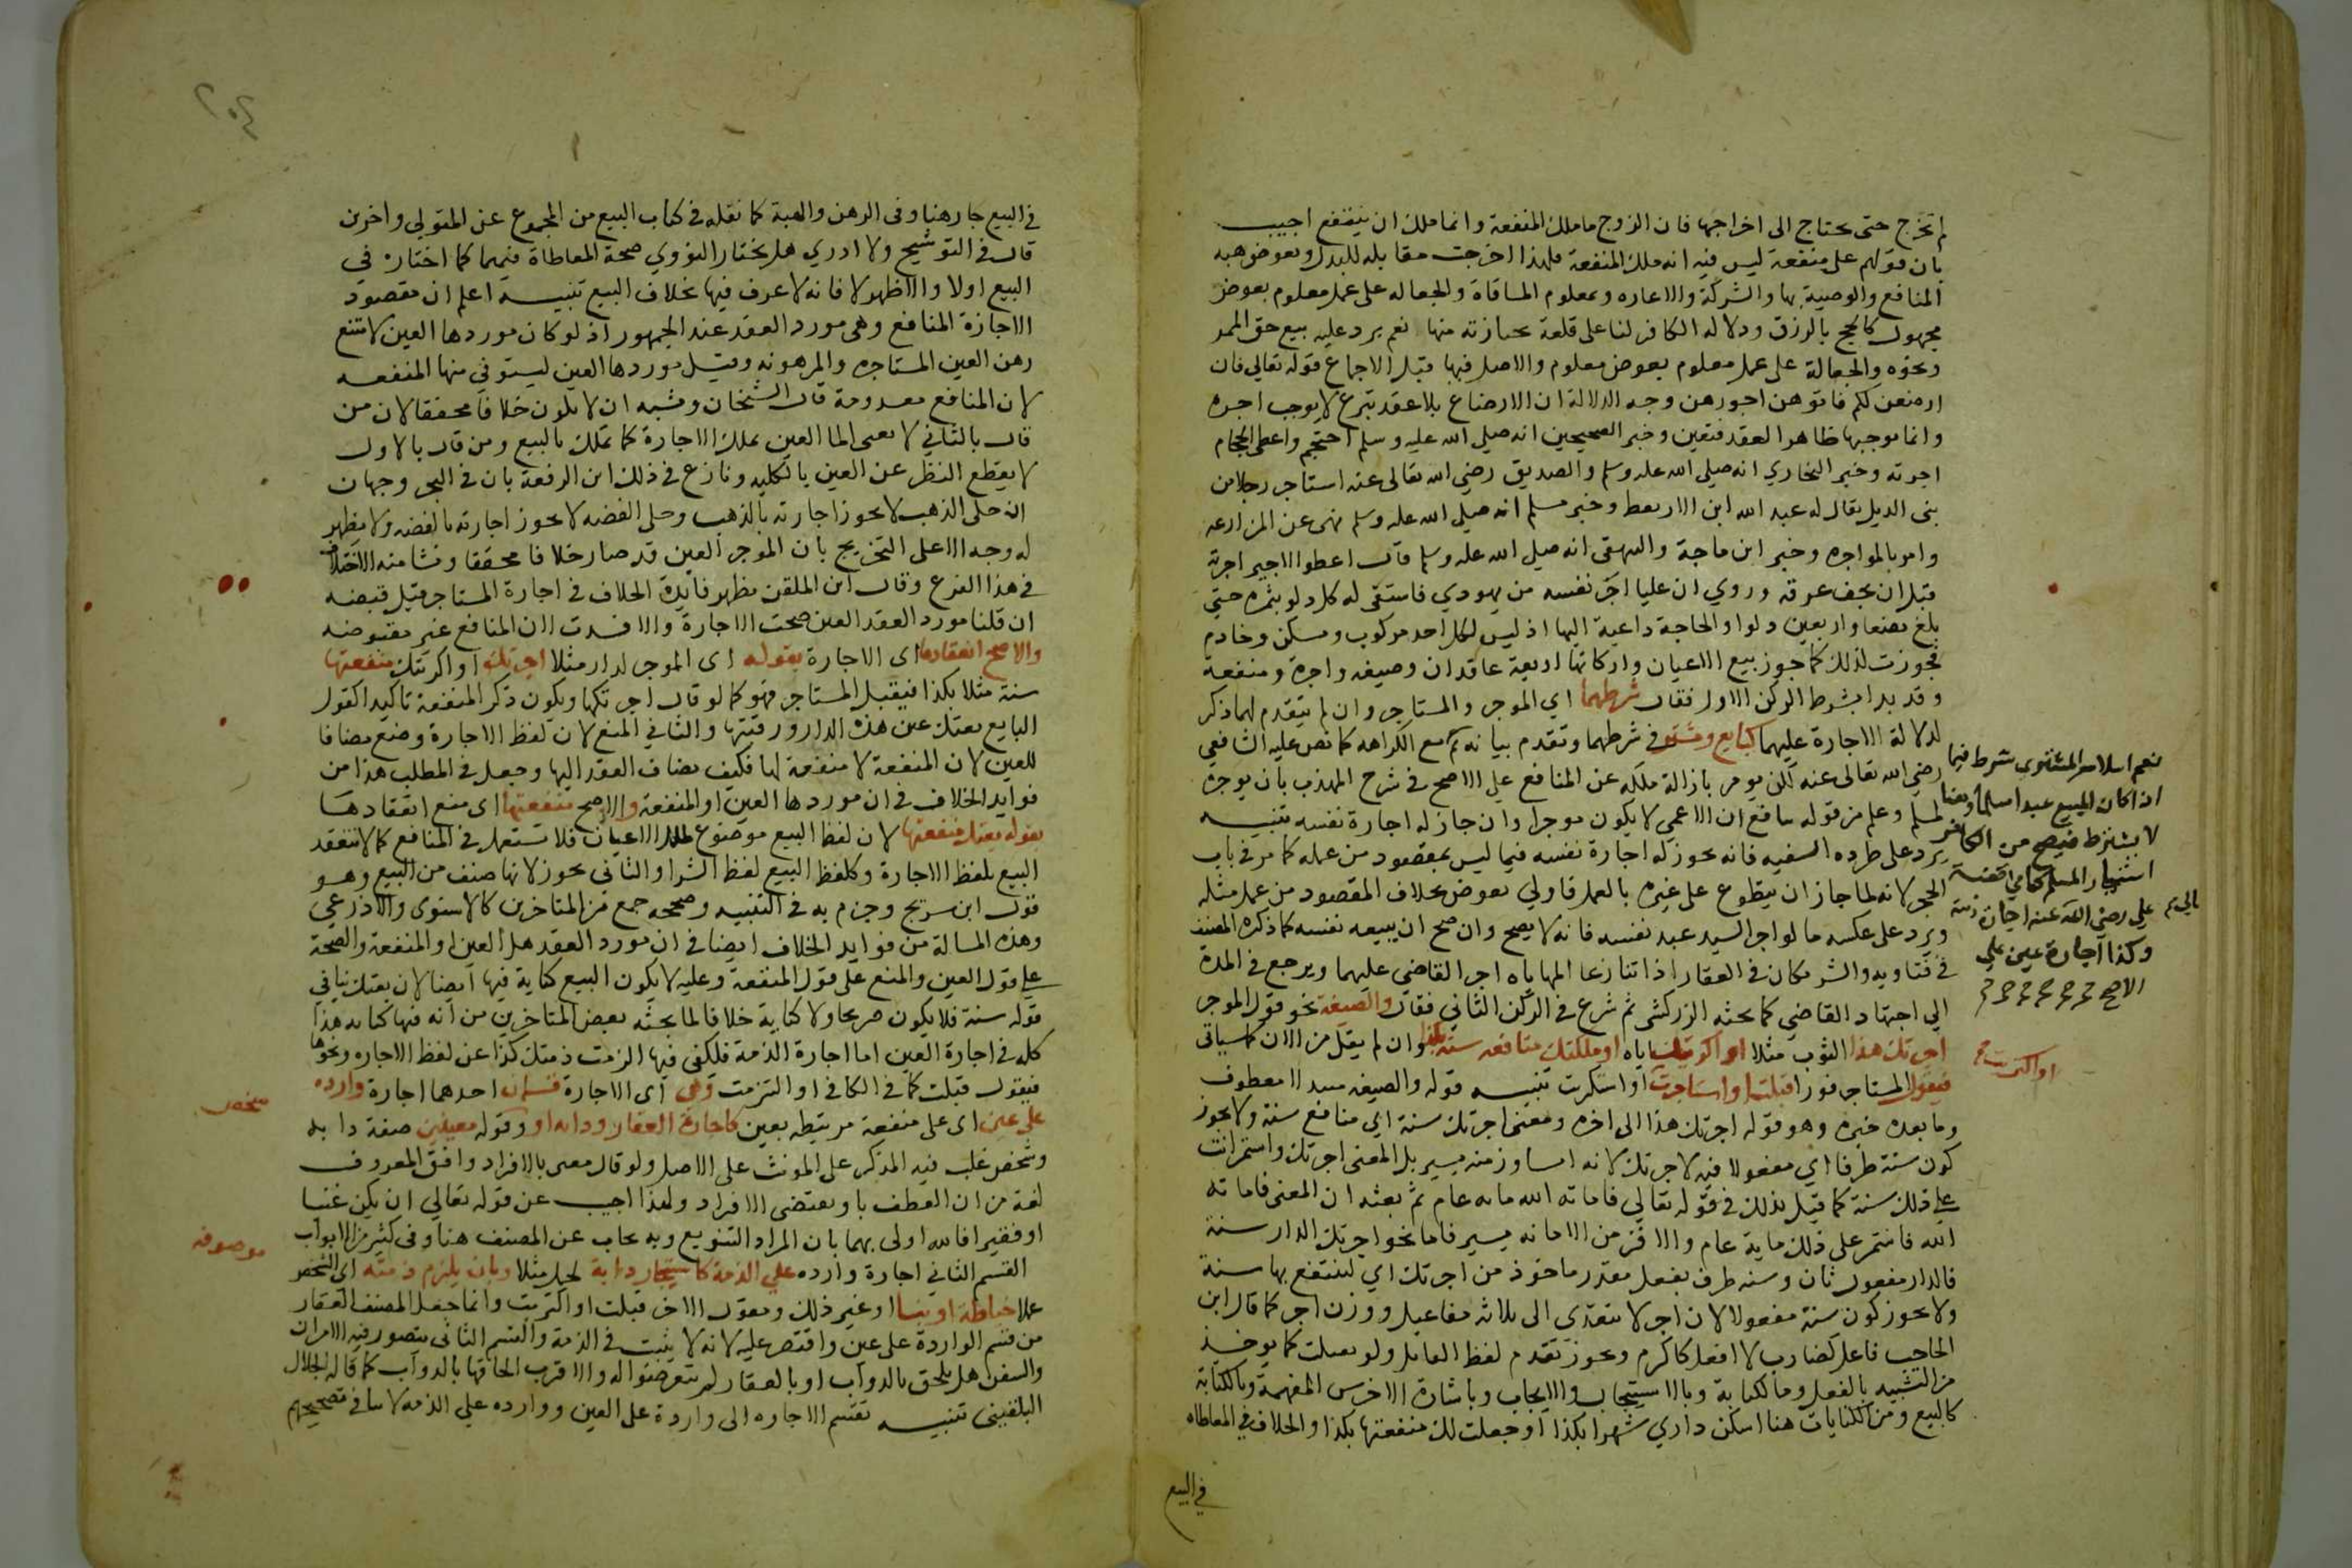 لم تخرج حتى يحتاج الى اخراجها فان الزوج ما ملك المنفعة وانما ملك ان ينتفع اجيب
بان قولهم على منفعة ليس فيه انه ملك المنفعة فلهذا اخرجت مقابله للبدل وبعوض هبه
المنافع والوصية بها والشركة والاعاره وبمعلوم المساقاة والجعاله على عمل معلوم بعوض
مجهول كالحج بالرزق ودلاله الكافر لنا على قلعة بجارية منها نعم يرد عليه بيع حق الممر
ونحوه والجعالة على عمل معلوم بعوض معلوم والاصل فيها قبل الاجماع قوله تعالى فان
ارضعن لكم فاتوهن اجورهن وجه الدلالة ان الارضاع بلا عقد تبرع لا يوجب اجره
وانما يوجبها ظاهرا العقد فتعين وخبر الصحيحين انه صلى الله عليه وسلم احتجم واعطى الحجام
اجرته وخبر البخاري انه صلى الله عليه وسلم والصديق رضي الله تعالى عنه استاجر رجلا من
بنى الديل يقال له عبد الله ابن الاريقط وخبر مسلم انه صلى الله عليه وسلم نهى عن المزارعه
وامر بالمواجره وخبر ابن ماجة والبيهقى انه صلى الله عليه وسلم قال اعطوا الاجير اجرته
قبل ان يجف عرقه وروي ان عليا اجر نفسه من يهودي فاستقى له كل دلو بتمره حتى
بلغ بضعا واربعين دلوا والحاجة داعية اليها اذ ليس لكل احد مركوب ومسكن وخادم
فجوزت لذلك كما جوز بيع الاعيان واركانها اربعة عاقدان وصيغه واجرة ومنفعة
وقد بدا بشرط الركن الاول فقال شرطهما اي الموجر والمستاجر وان لم يتقدم لهما ذكر
لدلالة الاجارة عليهما كبايع ومشتر في شرطهما وتقدم بيانه ثم مع الكراهه كما نص عليه الشافعي
رضي الله تعالى عنه لكن يومر بازالة ملكه عن المنافع على الاصح في شرح المهذب بان يوجره
لمسلم وعلم من قوله بيامنع ان الاعمى لا يكون موجرا وان جاز له اجارة نفسه تنبيه
يرد على طرده السفيه فانه يجوز له اجارة نفسه فيما ليس بمقصود من عمله كما مر في باب
الحجر لانه لما جاز ان يتطوع على غيره بالعمل فاولى بعوض بخلاف المقصود من عمل مثله
ويرد على عكسه ما لو اجر السيد عبد نفسه فانه لا يصح وان صح ان يبيعه نفسه كما ذكره المصنف
في فتاويه والشريكان في العقار اذا تنازعا المهاياه اجر القاضي عليهما ويرجع في المدة
الى اجتهاد القاضي كما بحثه الزركشى ثم شرع في الركن الثاني فقال والصيغة نحو قول الموجر
اجرتك هذا الثوب مثلا او اكريتك اياه او ملكتك منافعه سنة بكذا وان لم يقل من الان كما سياتى
فيقول المستاجر فورا قبلت او استاجرت او استكريت تنبيه قوله والصيغه مبتدا معطوف
وما بعده خبره وهو قوله اجرتك هذا الى اخره ومعنى اجرتك سنة اي منافع سنة ولا يجوز
كون سنة ظرفا اي مفعولا فيه لاجرتك لانه انشا وزمنه يسير بل المعنى اجرتك واستمر انت
على ذلك سنة كما قيل بذلك في قوله تعالى فاماته الله مايه عام ثم بعثه ان المعنى فاماته
الله فاستمر على ذلك ماية عام والا فزمن الاماته يسير فاما نحو اجرتك الدار سنة
فالدار مفعول ثان وسنه ظرف بفعل مقدر ماخوذ من اجرتك اي لينتفع بها سنة
ولا يجوز كون سنة مفعولا لان اجر لا يتعدى الى ثلاثه مفاعيل ووزن اجر كما قال ابن
الحاجب فاعل كضارب لا افعل كاكرم ويجوز تقدم لفظ القابل ولو بقبلت كما يوخذ
من التشبيه بالفعل وبالكناية وبالاستيجاب والايجاب وباشارة الاخرس المفهمة وبالكتابة
كالبيع ومن الكنايات هنا اسكن داري شهرا بكذا او جعلت لك منفعتها بكذا والخلاف في المعاطاه
في البيع
نعم اسلام المشتري شرط فيما
اذا كان المبيع عبدا مسلما وهنا
لا يشترط فيصح من الكافر
استيجار المسلم
علي رضي الله عنه اجارة ذمة
وكذا اجارة عين على
الاصح
او اكتريت
٢٠٤
في البيع جار هنا وفى الرهن والهبة كما نقله في كتاب البيع من المجموع عن المتولي واخرين
قال في التوشيح ولا ادري هل يختار النووي صحة المعاطاة فيهما كما اختاره في
البيع اولا والاظهر لا فانه لا عرف فيها بخلاف البيع تنبيه اعلم ان مقصود
الاجارة المنافع وهى مورد العقد عند الجمهور اذ لو كان موردها العين لامتنع
رهن العين المستاجره والمرهونه وقيل موردها العين ليستوفي منها المنفعه
لان المنافع معدومة قال الشيخان ويشبه ان لا يكون خلافا محققا لان من
قال بالثاني لا يعنى ان العين تملك بالاجارة كما تملك بالبيع ومن قال بالاول
لا يقطع النظر عن العين بالكليه ونازع في ذلك ابن الرفعة بان في البحر وجها ان
ان حلى الذهب لا يجوز اجارته بالذهب وحلى الفضه لا يجوز اجارته بالفضه ولا يظهر
له وجه الا على التخريج بان الموجر العين قد صار خلافا محققا ونشا منه الاختلاف
في هذا الفرع وقال ابن الملقن يظهر فايدة الخلاف في اجارة المستاجر قبل قبضه
ان قلنا مورد العقد العين صحت الاجارة والا فسدت لان المنافع غير مقبوضه
والاصح انعقادها اى الاجارة بقوله اى الموجر لدار مثلا اجرتك او اكريتك منفعتها
سنة مثلا بكذا فيقبل المستاجر فهو كما لو قال اجرتكها ويكون ذكر المنفعة تاكيدا كقول
البايع بعتك عين هذه الدار ورقبتها والثاني المنع لان لفظ الاجارة وضع مضافا
للعين لان المنفعة لا منفعة لها فكيف يضاف العقد اليها وجعل في المطلب هذا من
فوايد الخلاف في ان موردها العين او المنفعة والاصح منعها اى منع انعقادها
بقوله بعتك منفعتها لان لفظ البيع موضوع لملك الاعيان فلا تستعمل في المنافع كما لا ينعقد
البيع بلفظ الاجارة وكلفظ البيع لفظ الشرا والثاني يجوز لانها صنف من البيع وهو
قول ابن سريج وجزم به في التنبيه وصححه جمع من المتاخرين كالاسنوى والاذرعي
وهذه المسالة من فوايد الخلاف ايضا في ان مورد العقد هل العين او المنفعة والصحة
على قول العين والمنع على قول المنفعة وعليه لا يكون البيع كناية فيها ايضا لان بعتك ينافي
قوله سنة فلا يكون صريحا ولا كناية خلافا لما بحثه بعض المتاخرين من انه فيها كنايه هذا
كله في اجارة العين اما اجارة الذمة فلكفى فيها الزمت ذمتك كذا عن لفظ الاجاره ونحوها
فيقول قبلت كما في الكافي او التزمت وهى اى الاجارة قسمان احدهما اجارة وارده
على عين اى على منفعة مرتبطه بعين كاجارة العقار ودابه او وقوله معينين صفة دابه
وشخص غلب فيه المذكر على المونث على الاصل ولو قال معين بالافراد وافق المعروف
لغة من ان العطف باو يقتضى الافراد ولهذا اجيب عن قوله تعالى ان يكن غنيا
او فقيرا فالله اولى بهما بان المراد التنويع وبه يجاب عن المصنف هنا وفى كثير من الابواب
القسم الثاني اجارة وارده على الذمة كاستيجار دابة لحمل مثلا وبان يلزم ذمته اى الشخص
عملا خياطة او بنا او غير ذلك ويقول الاخر قبلت او اكتريت وانما جعل المصنف العقار
من قسم الواردة على عين واقتصر عليه لانه لا يثبت في الذمة والقسم الثاني يتصور فيه الامران
والسفن هل يلحق بالدواب او بالعقار لم يتعرضوا له والاقرب الحاقها بالدواب كما قاله الجلال
البلقينى تنبيه تقسم الاجاره الى واردة على العين ووارده على الذمه لا ينافي تصحيحهم
شخص
موصوفه